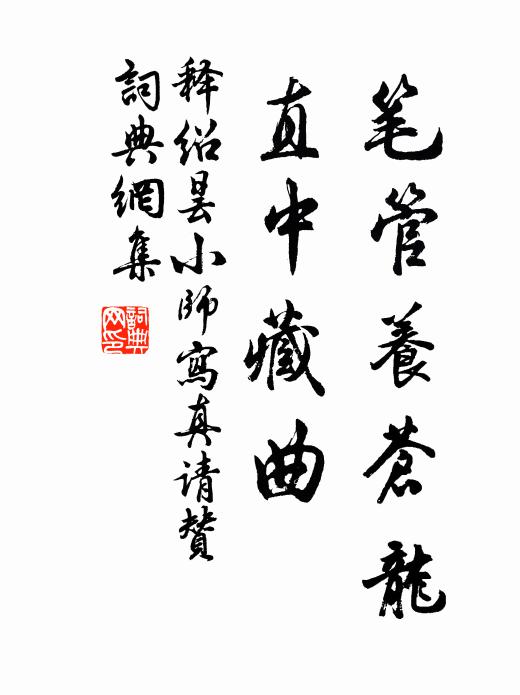 笔管養蒼龍
直中藏曲
释绍昙小師寫真请贊
詞典網集
詞典网印